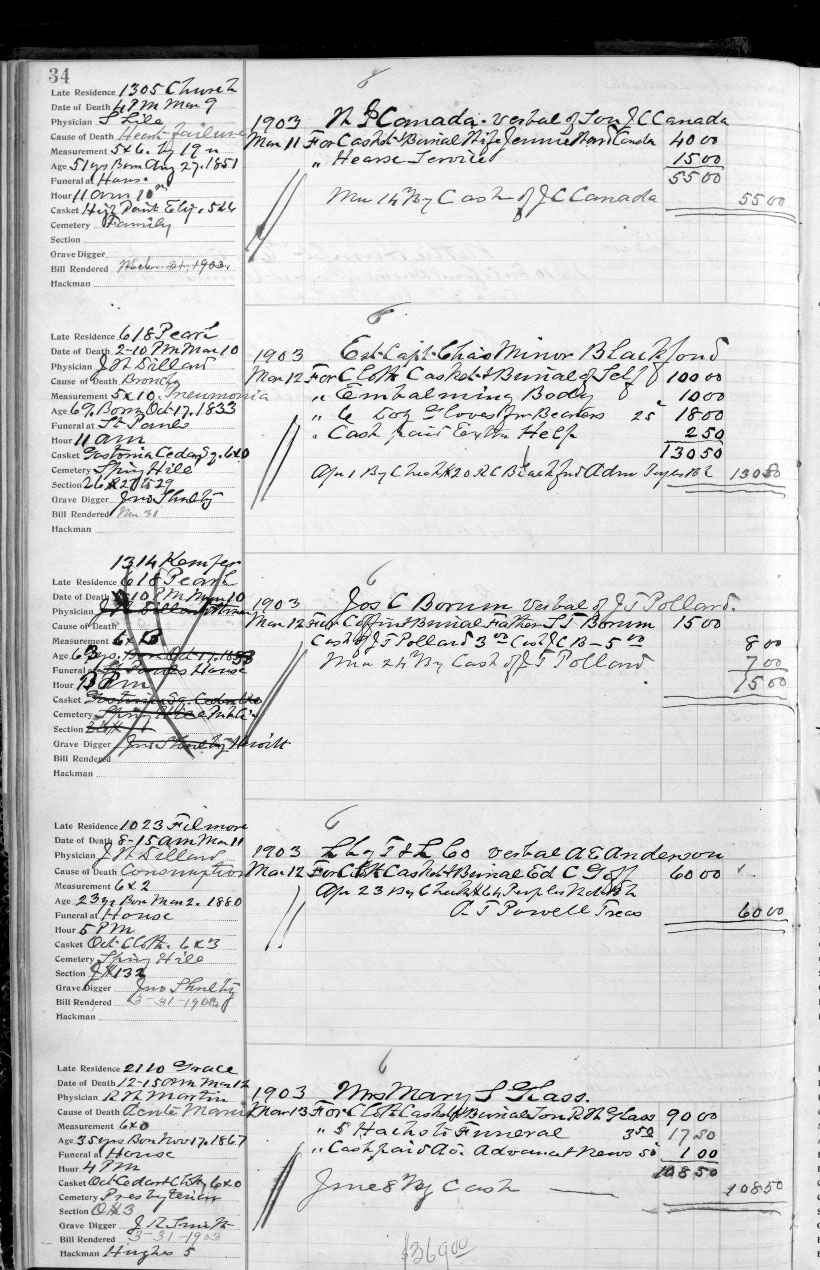 34
Late Residence 1305 Church
Date of Death 4 PM Mar 9
Physician S Lile
Cause of Death Heart failure
Measurement 5x6. by 19 in
Age 51 yrs Born Aug 27. 1851
Funeral at House
Hour 11 am
Casket High Point Elip. 5x6
Cemetery Family
Section
Grave Digger
Bill Rendered 1903
Hackman
6
1903 Canada. verbal of Son J C Canada
Mar 11 For Casket & Burial Wife Jennie Canada 40 00
" Hearse Service 15 00
55 00
Mar 14 By Cash of J C Canada 55 00
Late Residence 618 Pearl
Date of Death 2-10 PM Mar 10
Physician J H Dillard
Cause of Death Broncho
Measurement 5x10. Pneumonia
Age 69. Born Oct 17. 1833
Funeral at St Pauls
Hour 11 am
Casket Gastonia Cedar Sq. 6x0
Cemetery Spring Hill
Section
Grave Digger Jno Shelty
Bill Rendered Mar 30
Hackman
6
1903 Est Capt. Chas Minor Blackford
Mar 12 For Cloth Casket & Burial of Self 100 00
" Embalming Body 10 00
" 6 Doz Gloves for Bearers 25 18 00
" Cash paid Extra Help 2 50
130 50
Apr 1 By Check #20 R C Blackford Adm Peoples Bk 130 50
1314 Kemper
Late Residence 618 Pearl
Date of Death 2-10 PM Mar 10
Physician J H Dillard
Cause of Death
Measurement 6x
Age 63 yrs. Born Oct 17. 1833
Funeral at St Pauls House
Hour PM
Casket Gastonia Sq. Cedar 6x0
Cemetery Spring Hill Public
Section
Grave Digger Jno Shelty Hewitt
Bill Rendered
Hackman
6
1903 Jos C Borum verbal of J T Pollard.
Mar 12 For Coffin & Burial Father S T Borum 15 00
Cash of J T Pollard 3 00 Cash J C B - 5 00 8 00
Mar 24 By Cash of J T Pollard 7 00
15 00
Late Residence 1023 Filmore
Date of Death 8-15 am Mar 11
Physician J H Dillard
Cause of Death Consumption
Measurement 6x2
Age 23 yrs Born Mar 2. 1880
Funeral at House
Hour 5 PM
Casket Oct Cloth. 6x3
Cemetery Spring Hill
Section J # 132
Grave Digger Jno Shelty
Bill Rendered 3-31-1903
Hackman
6
1903 Lbg T & L Co verbal A E Anderson
Mar 12 For Cloth Casket & Burial Ed C Goff 60 00
Apr 23 By Check #64 Peoples Natl Bk
A T Powell Treas 60 00
Late Residence 2110 Grace
Date of Death 12-15 Mar 12
Physician R W Martin
Cause of Death Acute Mania
Measurement 6x0
Age 35 yrs Born Nov 17. 1867
Funeral at House
Hour 4 PM
Casket Oct Cedar Cloth 6x0
Cemetery Presbyterian
Section
Grave Digger J R Smith
Bill Rendered 3-31-1903
Hackman Hughes 5
6
1903 Mrs Mary S Glass.
Mar 13 For Cloth Casket & Burial Son R H Glass 90 00
" 5 Hacks to Funeral 3 50 17 50
" Cash paid Ad. Advance & News 50 1 00
108 50
June 8 By Cash 108 50
$369 00